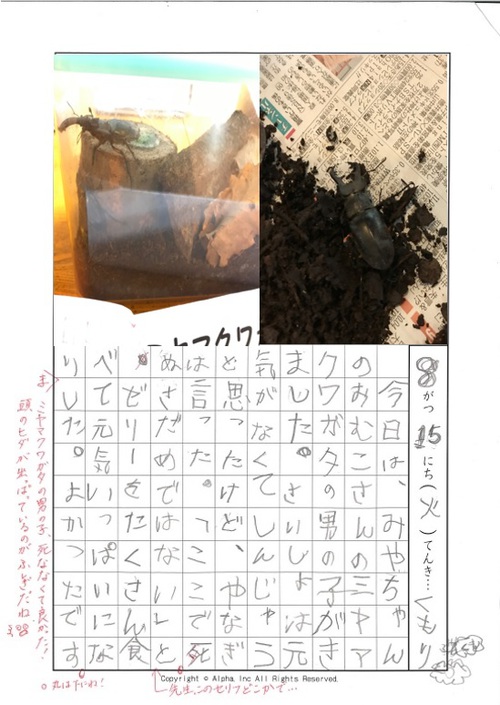 8がつ15にち(火)てんき…くもり
今日は、みやちゃん
のおむこさんのミヤマ
クワガタの男の子がき
ました。さいしょは元
気がなくてしんじゃう
と思ったけど、やなぎ
は言った。「ここで死
ぬさだめではない」と
ゼリーをたくさん食
べて元気いっぱいにな
りした。よかったです
ま
ミヤマクワガタの男の子、死ななくて良かった!
頭のヒダが出っぱっているのがふしぎだね。
○丸は下にね!
先生、このセリフどこかで…
Copyright © Alpha. Inc All Rights Reserved.